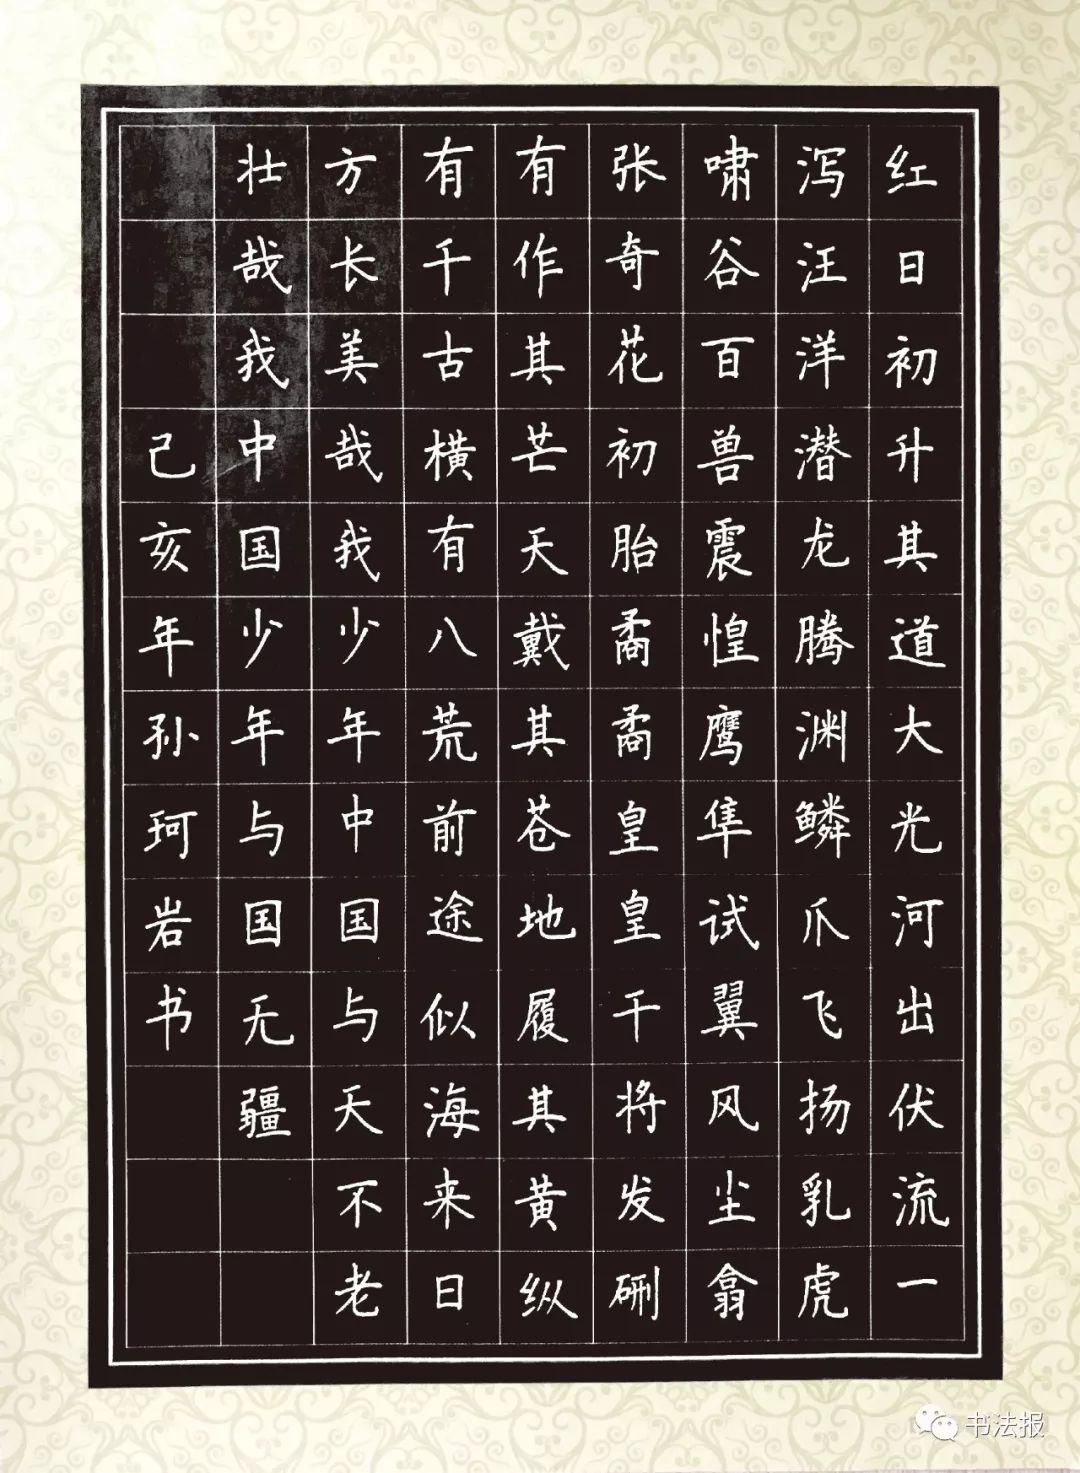 红日初升其道大光河出伏流一
泻汪洋潜龙腾渊鳞爪飞扬乳虎
啸谷百兽震惶鹰隼试翼风尘翕
张奇花初胎矞矞皇皇干将发硎
有作其芒天戴其苍地履其黄纵
有千古横有八荒前途似海来日
方长美哉我少年中国与天不老
壮哉我中国少年与国无疆
己亥年孙珂岩书
书法报